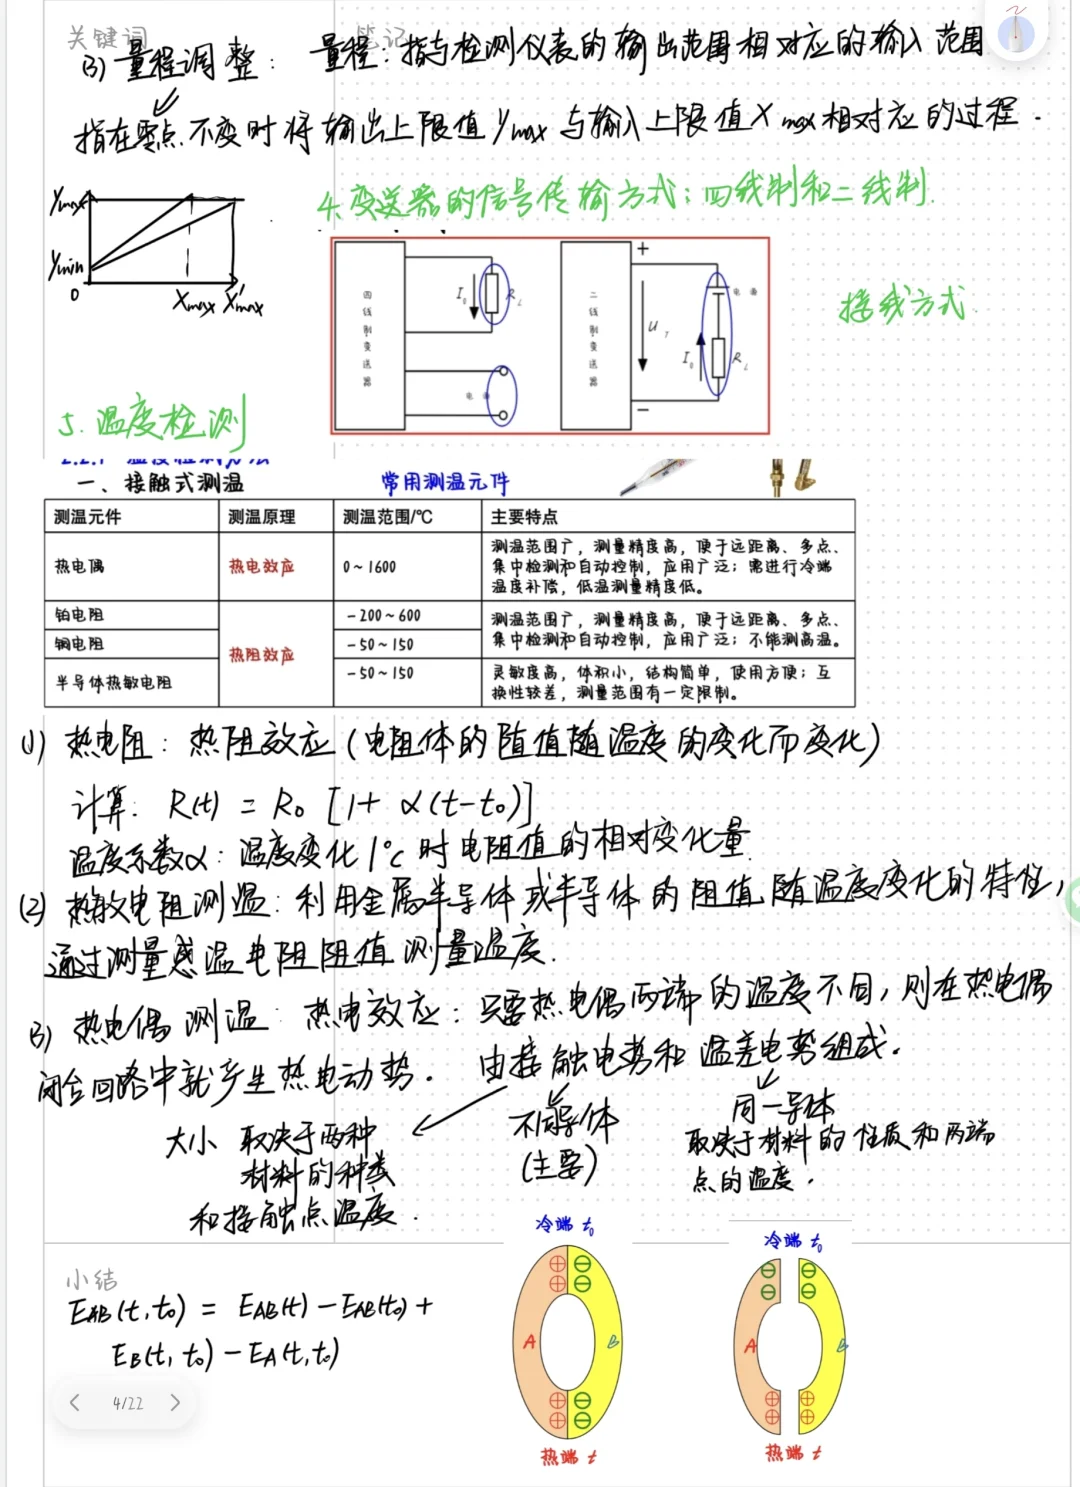 关键词
笔记
(3) 量程调整： 量程：指与检测仪表的输出范围相对应的输入范围
指在零点不变时将输出上限值ymax与输入上限值Xmax相对应的过程．
ymax
ymin
0
Xmax X'max
4.变送器的信号传输方式：四线制和二线制．
四线制变送器
I₀
R_L
电源
二线制变送器
+
U_T
−
I₀
电源
R_L
接线方式
5. 温度检测
一、接触式测温
常用测温元件
测温元件 测温原理 测温范围/℃ 主要特点
热电偶 热电效应 0～1600 测温范围广，测量精度高，便于远距离、多点、
集中检测和自动控制，应用广泛；需进行冷端
温度补偿，低温测量精度低。
铂电阻 －200～600 测温范围广，测量精度高，便于远距离、多点、
铜电阻 热阻效应 －50～150 集中检测和自动控制，应用广泛；不能测高温。
半导体热敏电阻 －50～150 灵敏度高，体积小，结构简单，使用方便；互
换性较差，测量范围有一定限制。
(1) 热电阻：热阻效应（电阻体的阻值随温度的变化而变化）
计算． R(t) = R₀ [1+ α(t-t₀)]
温度系数α：温度变化1℃时电阻值的相对变化量．
(2) 热敏电阻测温：利用金属半导体或半导体的阻值随温度变化的特性，
通过测量感温电阻阻值测量温度．
(3) 热电偶测温：热电效应：只要热电偶两端的温度不同，则在热电偶
闭合回路中就产生热电动势． 由接触电势和温差电势组成．
大小 取决于两种
材料的种类
和接触点温度．
不同导体
（主要）
同一导体
取决于材料的性质和两端
点的温度．
冷端 t₀
A
B
热端 t
冷端 t₀
A
B
热端 t
小结
E_AB(t,t₀) = E_AB(t) − E_AB(t₀) +
E_B(t,t₀) − E_A(t,t₀)
4/22